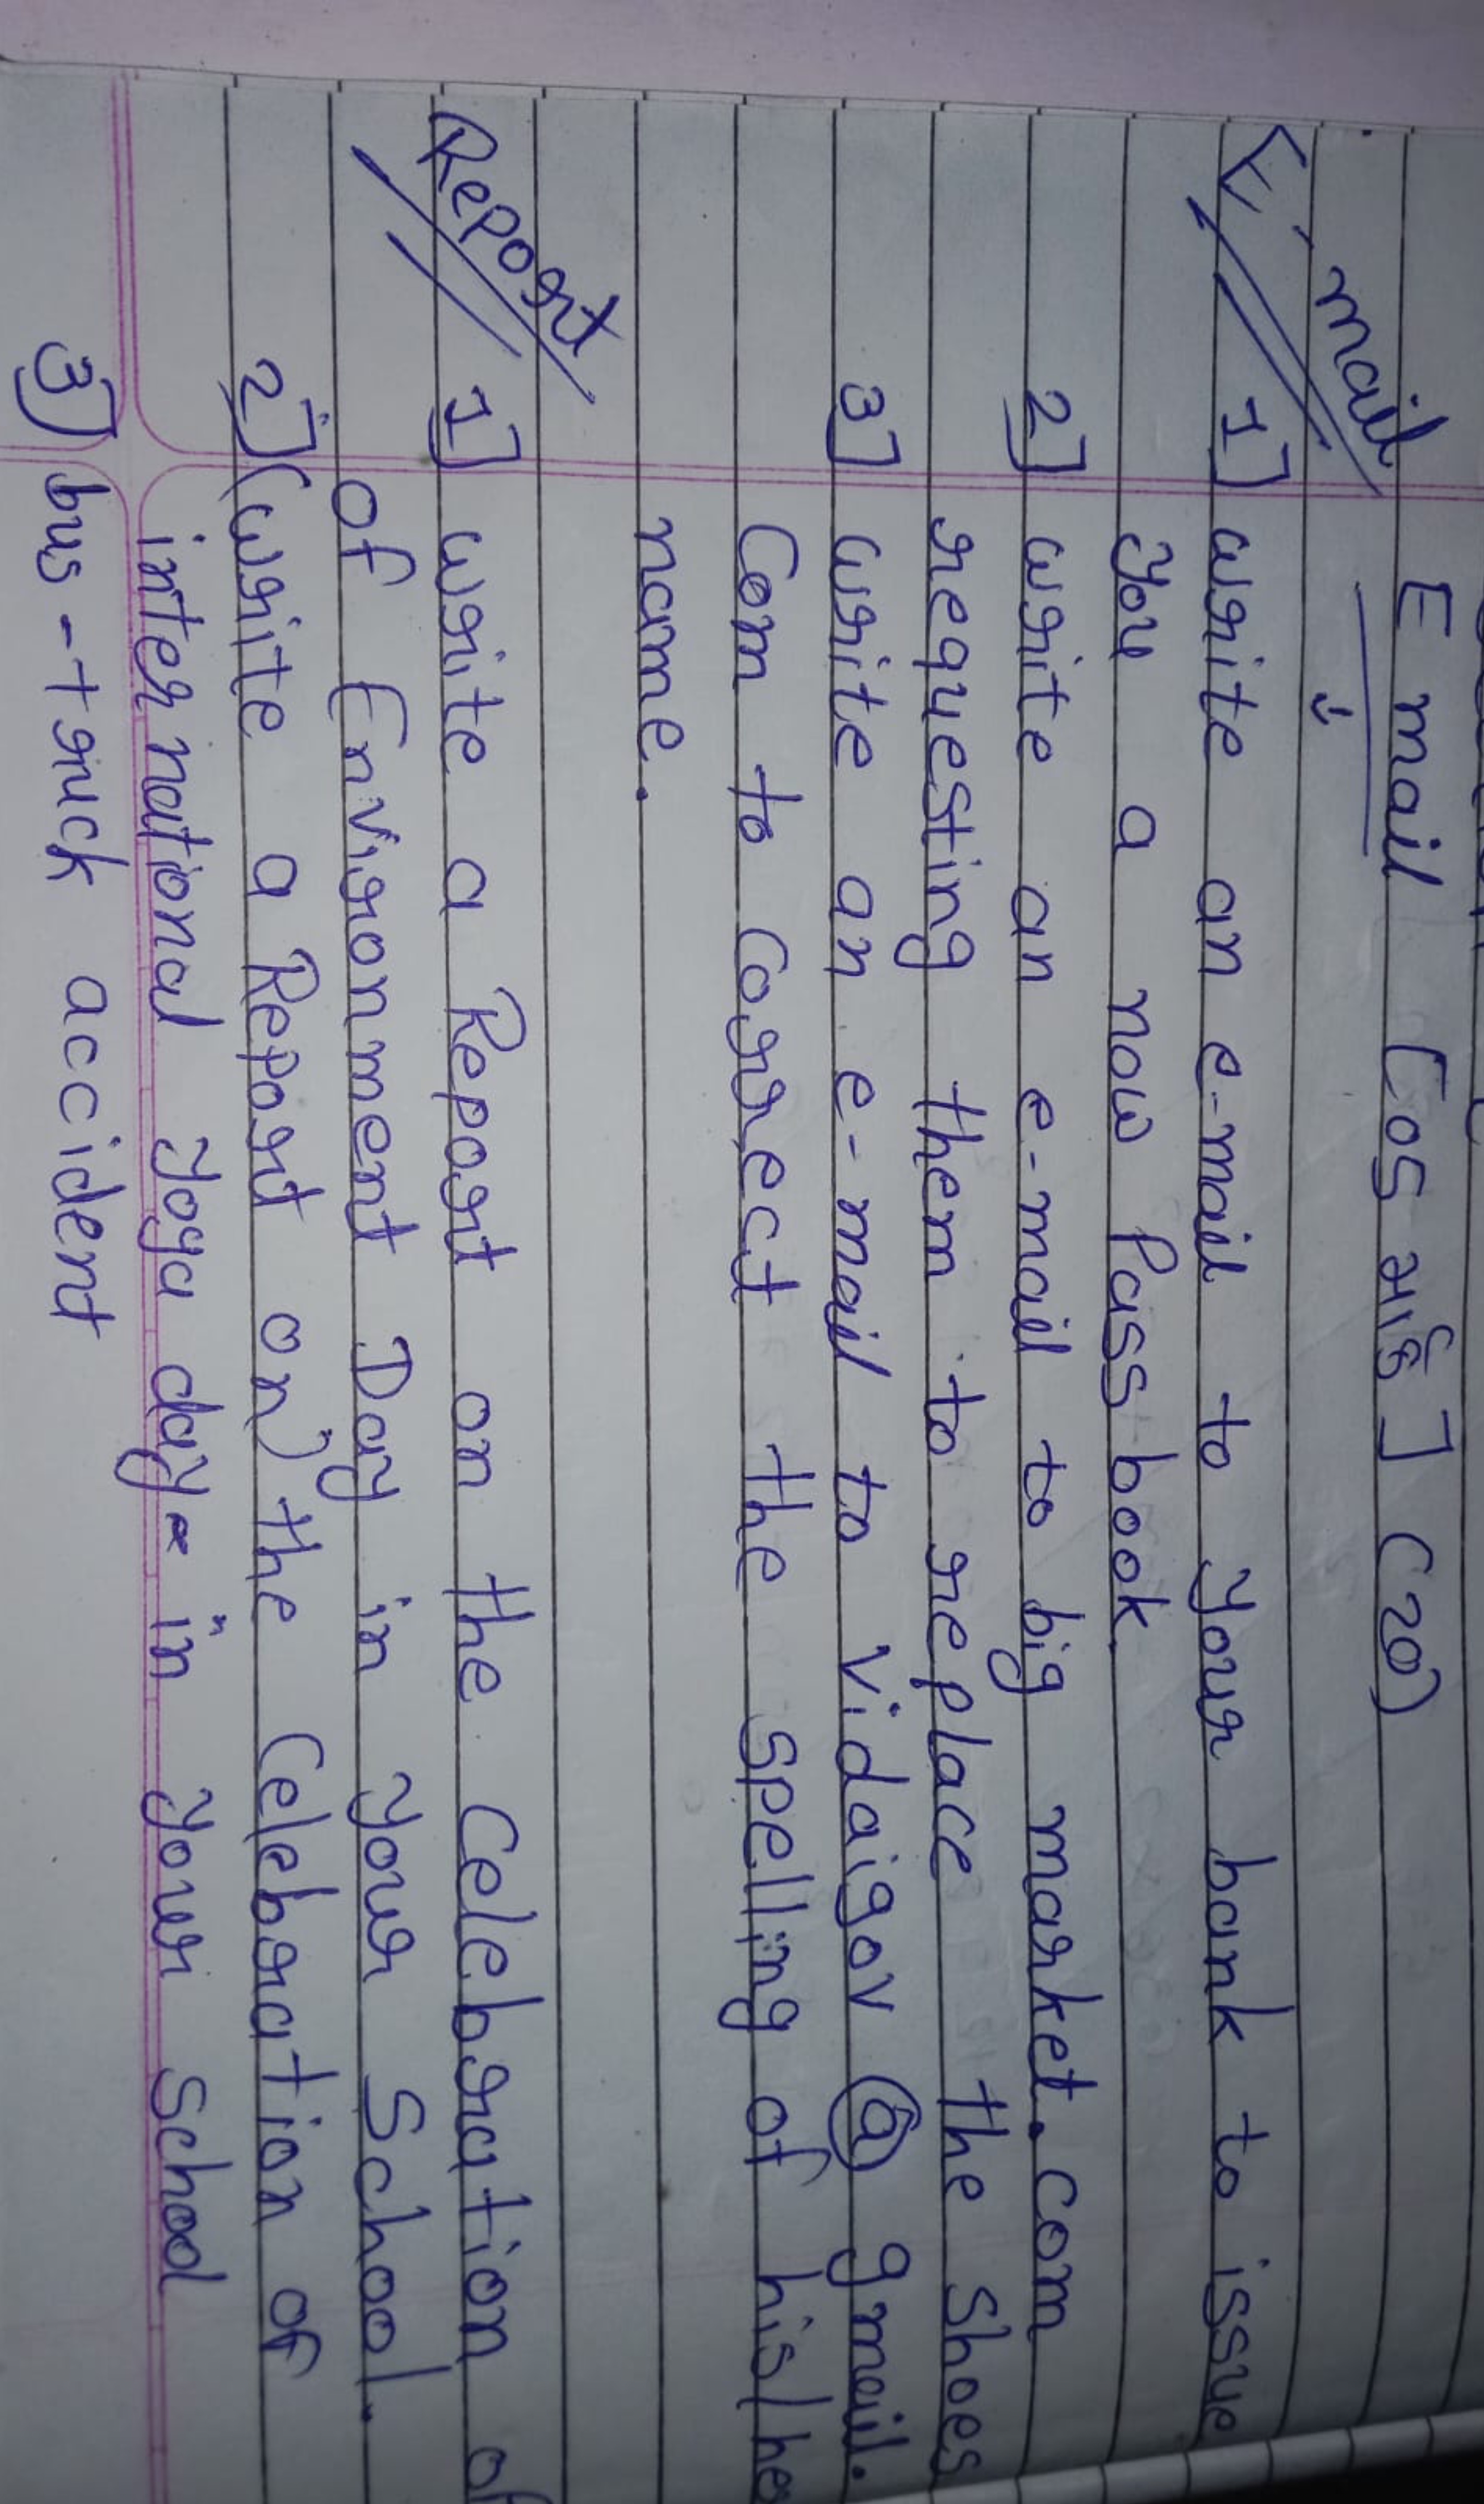 E mail [05 मार्क] (20)
E, mail
1] write an e-mail to your bank to issue
you a now Pass book
2] write an e-mail to big market.com
requesting them to replace the shoes
3] write an e-mail to vidaigov @ gmail.
Com to correct the spelling of his/he
name.
Report
1] write a Report on the Celebration of
of Environment Day in your School.
2] (write a Report on) the Celebration of
international yoga day in your school
3] bus - truck accident